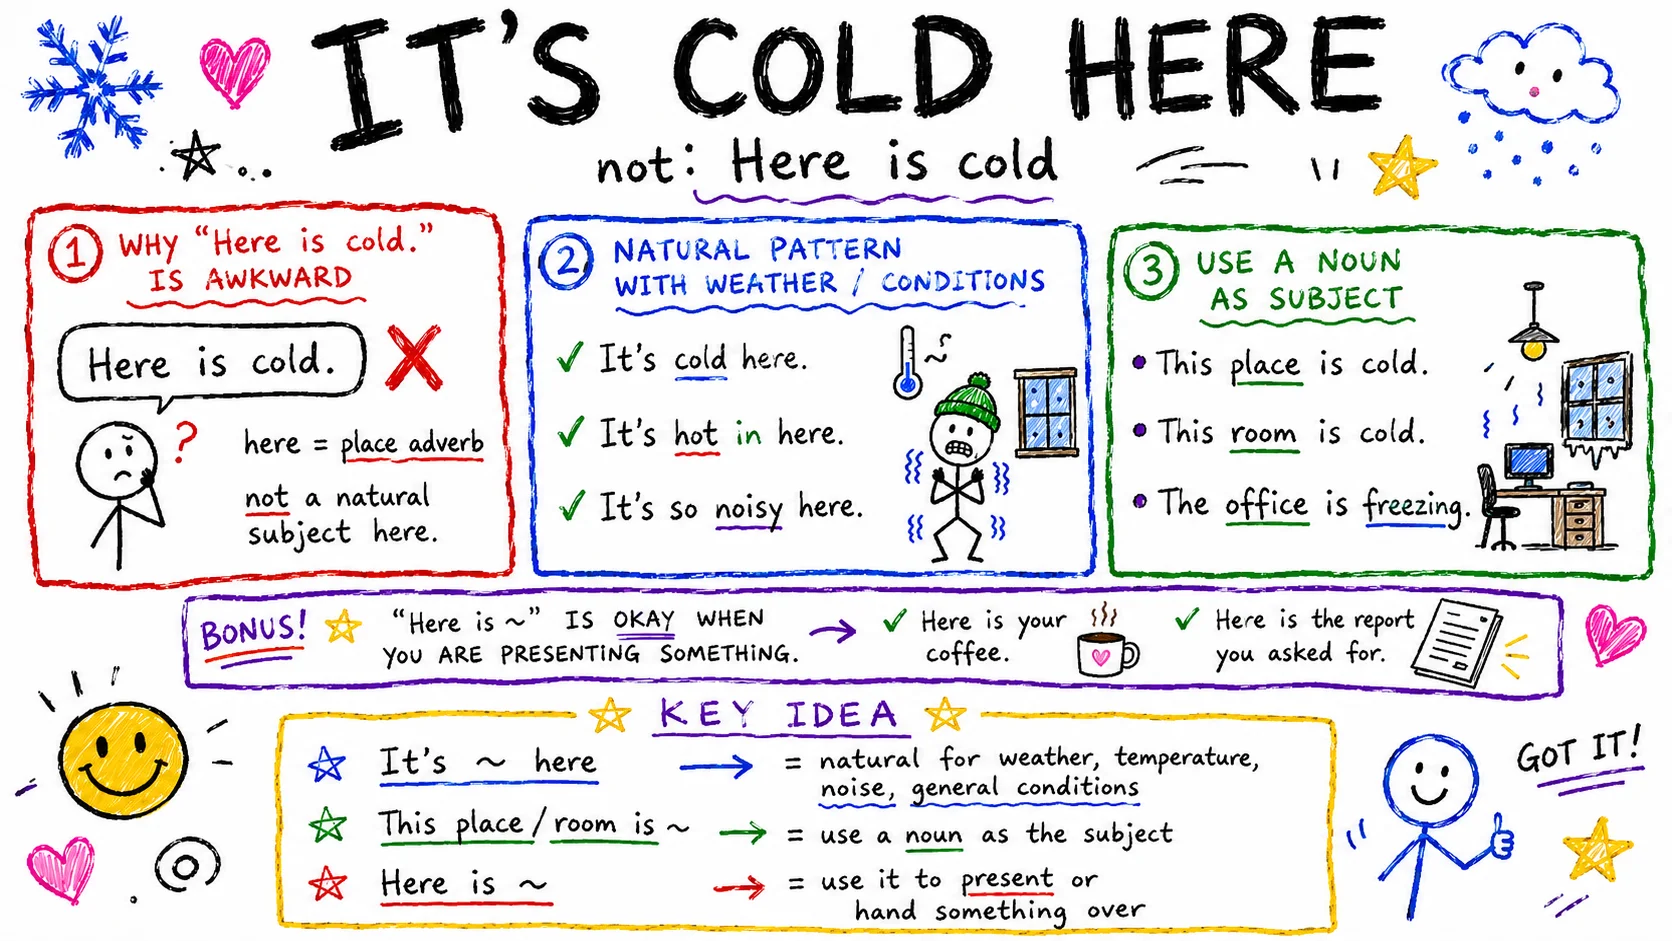 IT'S COLD HERE
not: Here is cold
1 WHY "Here is cold."
IS AWKWARD
Here is cold.
?
here = place adverb
not a natural
subject here.
2 NATURAL PATTERN
WITH WEATHER / CONDITIONS
✓ It's cold here.
✓ It's hot in here.
✓ It's so noisy here.
3 USE A NOUN
AS SUBJECT
• This place is cold.
• This room is cold.
• The office is freezing.
BONUS! "Here is ~" IS OKAY WHEN
YOU ARE PRESENTING SOMETHING. →
✓ Here is your
coffee.
✓ Here is the report
you asked for.
KEY IDEA
It's ~ here → = natural for weather, temperature,
noise, general conditions
This place / room is ~ → = use a noun as the subject
Here is ~ → = use it to present or
hand something over
GOT IT!